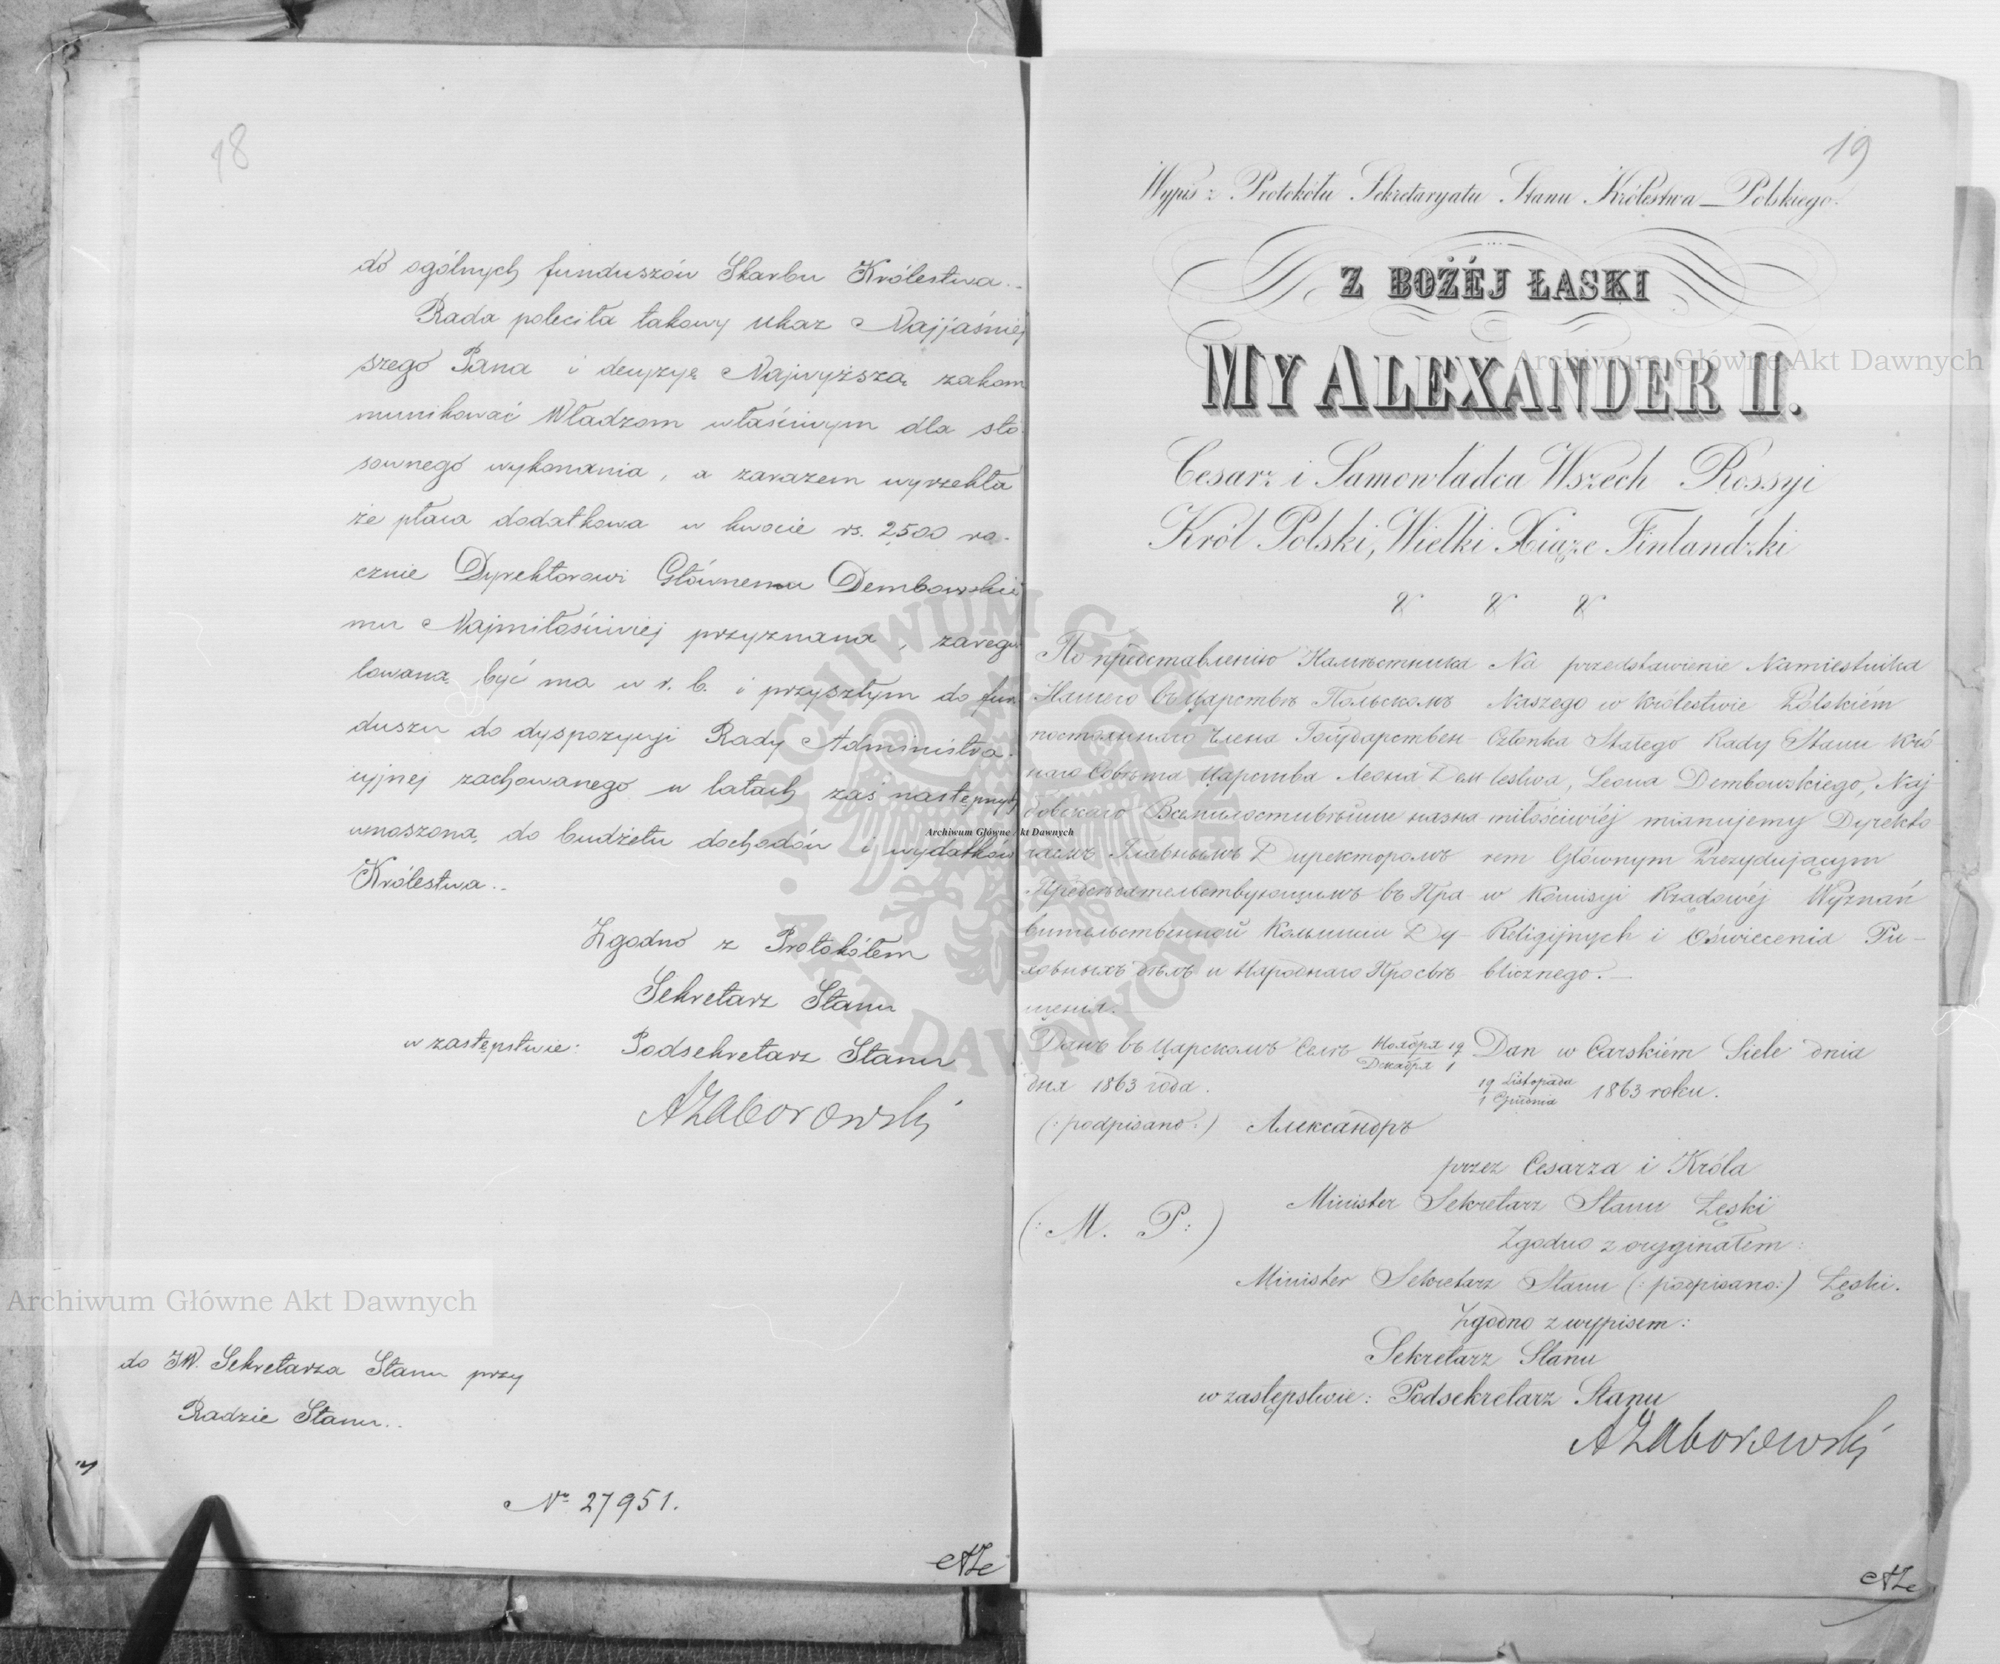 18
do ogólnych funduszów Skarbu Królestwa.
Rada poleciła takowy ukaz Najjaśniej
szego Pana i decyzyę Najwyższą zakom
munikować Władzom właściwym dla sto
sownego wykonania, a zarazem wyrzekła
że płaca dodatkowa w kwocie rs. 2500 ro-
cznie Dyrektorowi Głównemu Dembowskie
mu Najmiłościwiej przyznana, zaregu
lowaną być ma w r. b. i przyszłym do fun
duszu do dyspozycyi Rady Administra-
cyjnej zachowanego w latach zaś następnych
wnoszoną do budżetu dochodów i wydatków
Królestwa.
Zgodno z Protokółem
Sekretarz Stanu
w zastępstwie: Podsekretarz Stanu
AZaborowski
do JW. Sekretarza Stanu przy
Radzie Stanu.
No 27951.
19
Wypis z Protokółu Sekretaryatu Stanu Królestwa Polskiego.
Z BOŻÉJ ŁASKI
MY ALEXANDER II.
Cesarz i Samowładca Wszech Rossyi
Król Polski, Wielki Xiąże Finlandzki
По представленію Намѣстника
Нашего въ Царствѣ Польскомъ
постояннаго Члена Государствен-
наго Совѣта Царства Леона Дем
бовскаго Всемилостивѣйше назна
чаемъ Главнымъ Директоромъ
Предсѣдательствующимъ въ Пра
вительственной Коммисіи Ду-
ховныхъ дѣлъ и Народнаго Просвѣ
щенія.
Данъ въ Царскомъ Селѣ Ноября 19
Декабря 1
дня 1863 года.
Na przedstawienie Namiestnika
Naszego w Królestwie Polskiém
Członka Stałego Rady Stanu Kró
lestwa, Leona Dembowskiego, Naj-
miłościwiéj mianujemy Dyrekto
rem Głównym Prezydującym
w Komisyi Rządowéj Wyznań
Religijnych i Oświecenia Pu-
blicznego.
Dan w Carskiém Siele dnia
19 Listopada
1 Grudnia 1863 roku.
(: podpisano :) Александръ
przez Cesarza i Króla
Minister Sekretarz Stanu Łęski
(: M. P. :)
Zgodno z oryginałem:
Minister Sekretarz Stanu (: podpisano :) Łęski.
Zgodno z wypisem:
Sekretarz Stanu
w zastępstwie: Podsekretarz Stanu
AZaborowski
Archiwum Główne Akt Dawnych
Archiwum Główne Akt Dawnych
Archiwum Główne Akt Dawnych
ARCHIWUM GŁÓWNE AKT DAWNYCH